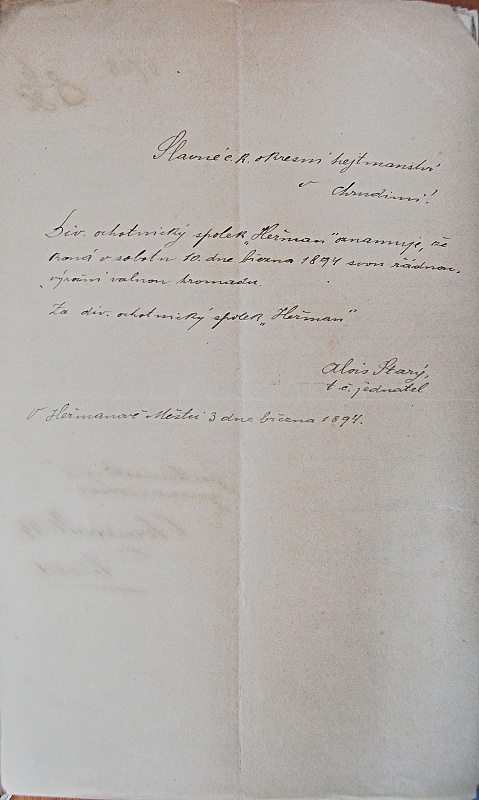 Slavné c. k. okresní hejtmanství
v Chrudimi!
Div. ochotnický spolek „Heřman“ oznamuje, že
koná v sobotu 10. dne března 1894 svou řádnou
výroční valnou hromadu.
Za div. ochotnický spolek „Heřman“
Alois Starý,
t. č. jednatel
V Heřmanově Městci 3 dne března 1894.